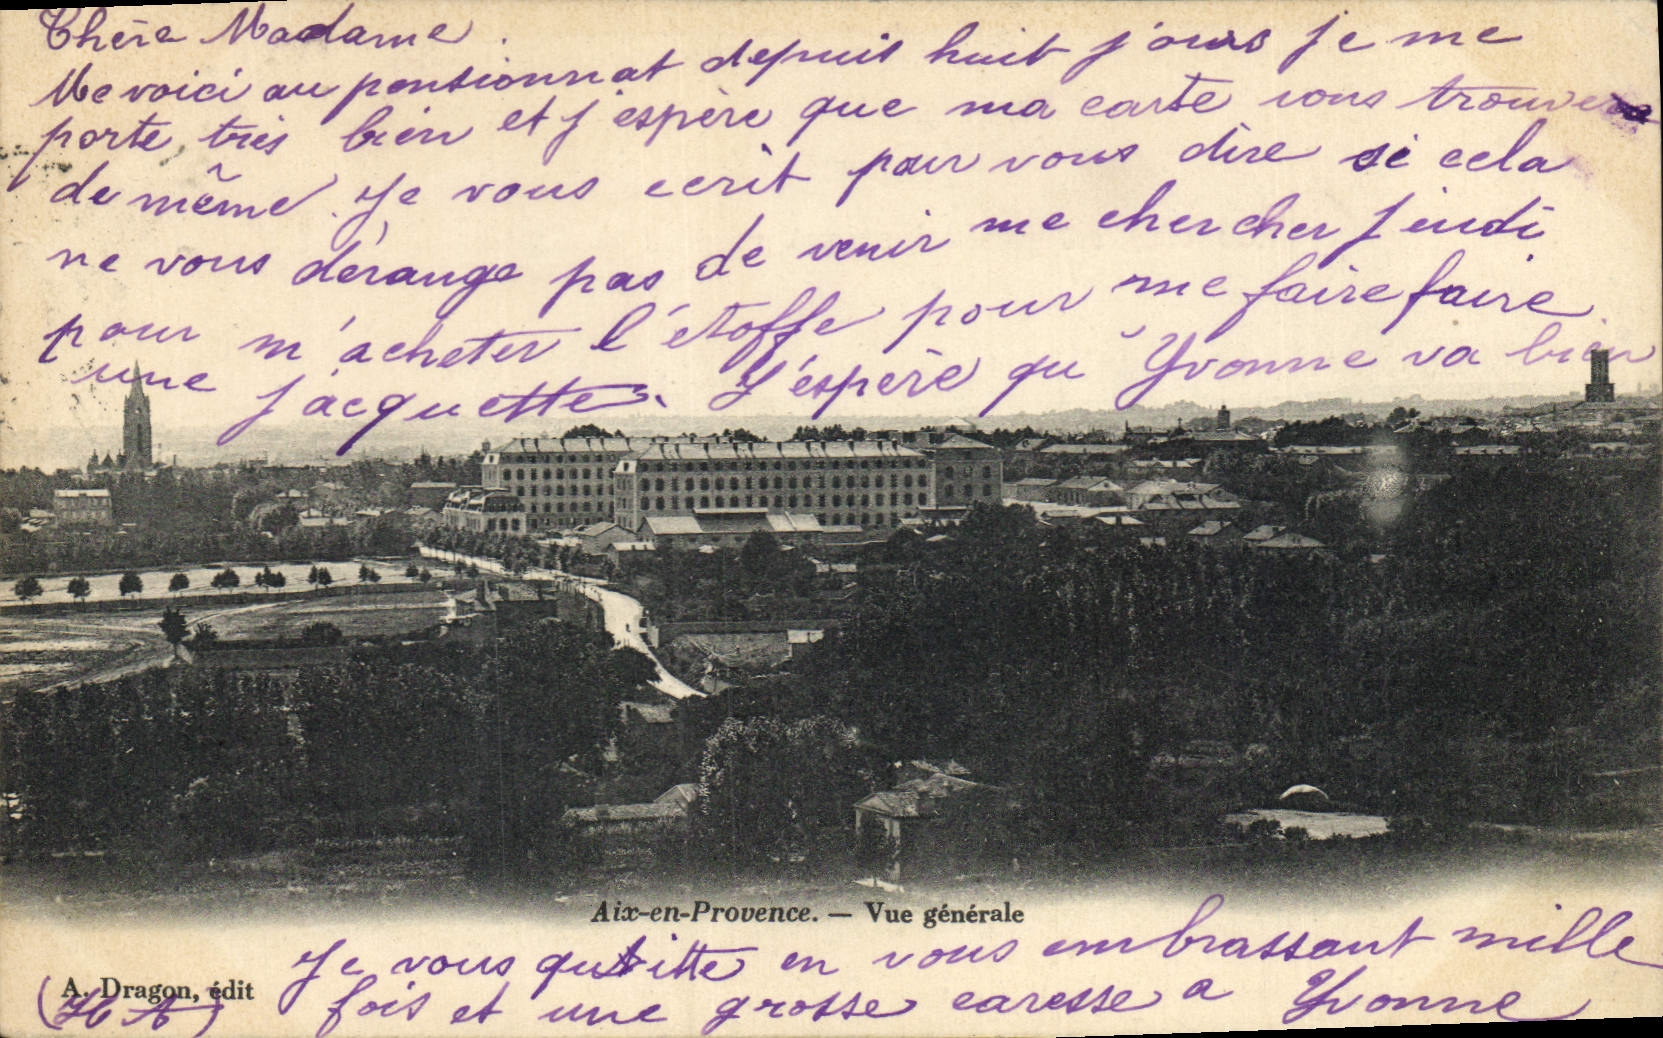 Chère Madame.
Me voici au pensionnat depuis huit jours je me
porte très bien et j'espère que ma carte vous trouvera
de même. Je vous ecrit pour vous dire si cela
ne vous dérange pas de venir me chercher Jeudi
pour m'acheter l'étoffe pour me faire faire
une jacquette. J'espère qu'Yvonne va bien
Aix-en-Provence. — Vue générale
Je vous quitte en vous embrassant mille
A. Dragon, édit
fois et une grosse caresse a Yvonne